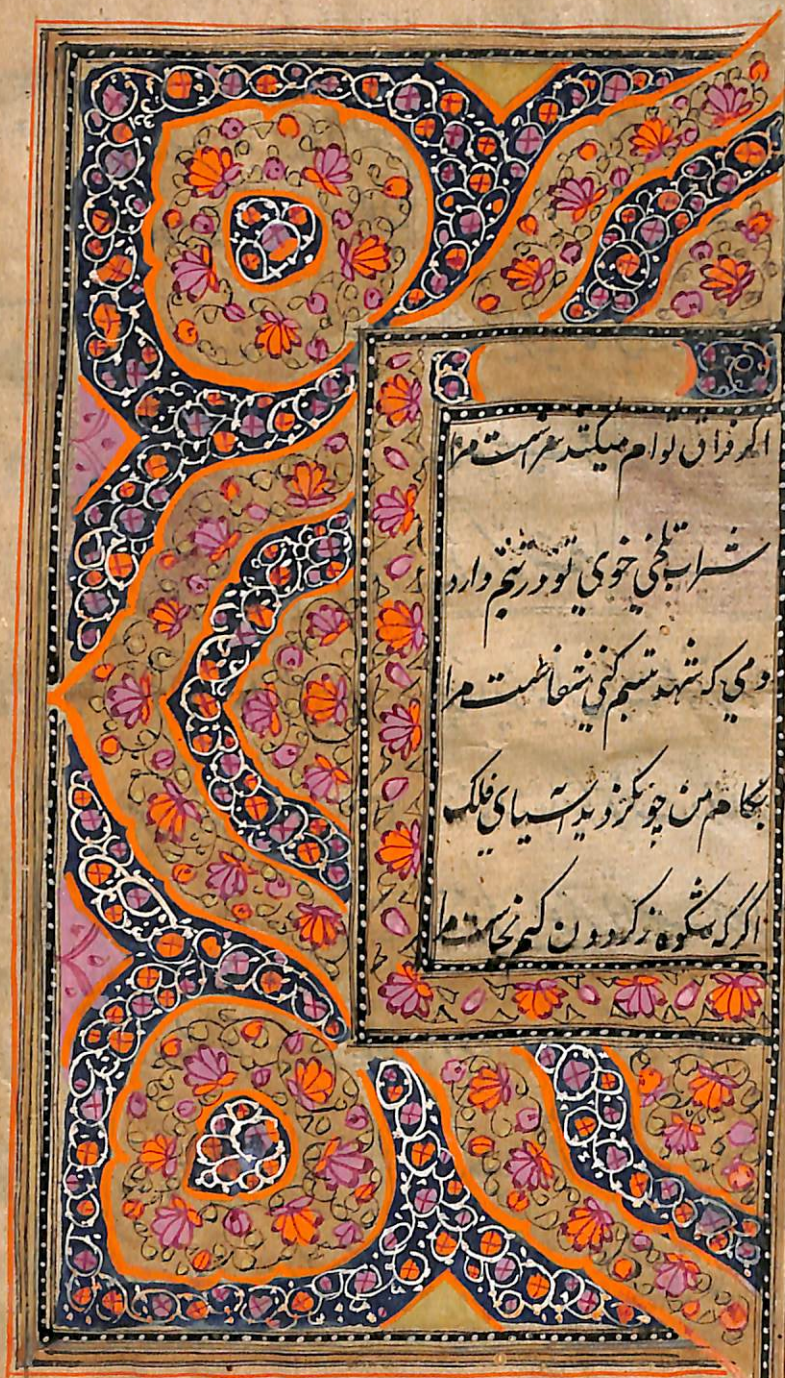 اکر فراق توام میکشد سزاست مرا
شراب تلخی خوی تو در نتجم دارد
دمی که شهد تبسم کنی شفاست مرا
بکام من چو نکردید آسیای فلک
اکر که شکوه ز کردون کنم بجاست مرا